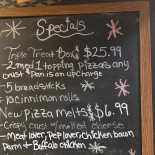 Specials
Triple Treat Box $25.99
- 2 med 1 topping pizzas any
crust * Pan is an upcharge
- 5 breadsticks
- 10 cinnimon rolls
New pizza melts $6.99
- Crispy crust w/ melted cheese
- Meat lover, Pep lover, Chicken bacon
Parm & Buffalo chicken